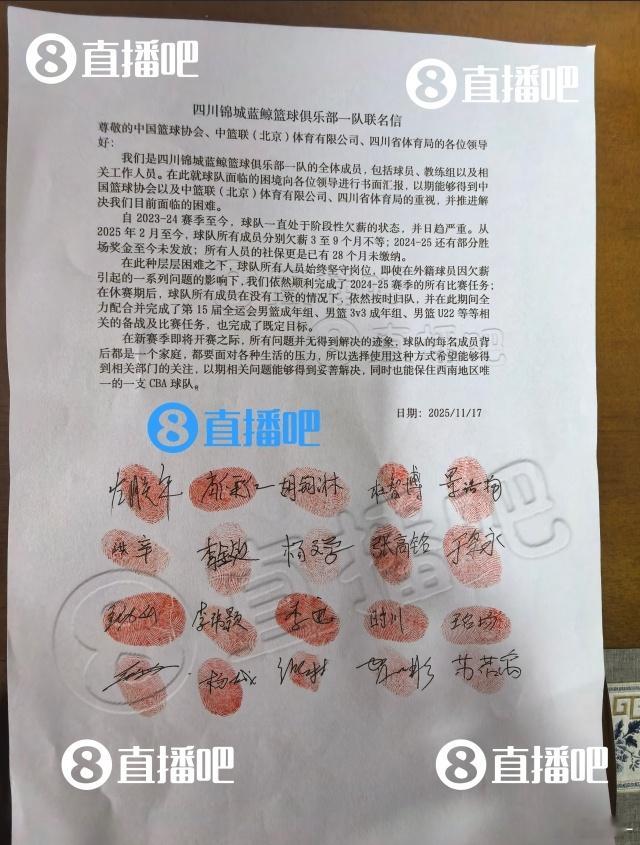 8直播吧
8直播吧
四川锦城蓝鲸篮球俱乐部一队联名信
尊敬的中国篮球协会、中篮联（北京）体育有限公司、四川省体育局的各位领导
好：
我们是四川锦城蓝鲸篮球俱乐部一队的全体成员，包括球员、教练组以及相
关工作人员。在此就球队面临的困境向各位领导进行书面汇报，以期能够得到中
国篮球协会以及中篮联（北京）体育有限公司、四川省体育局的重视，并推进解
决我们目前面临的困难。
自 2023-24 赛季至今，球队一直处于阶段性欠薪的状态，并日趋严重。从
2025 年 2 月至今，球队所有成员分别欠薪 3 至 9 个月不等；2024-25 还有部分胜
场奖金至今未发放；所有人员的社保更是已有 28 个月未缴纳。
在此种层层困难之下，球队所有人员始终坚守岗位，即使在外籍球员因欠薪
引起的一系列问题的影响下，我们依然顺利完成了 2024-25 赛季的所有比赛任务；
在休赛期后，球队所有成员在没有工资的情况下，依然按时归队，并在此期间全
力配合并完成了第 15 届全运会男篮成年组、男篮 3v3 成年组、男篮 U22 等等相
关的备战及比赛任务，也完成了既定目标。
在新赛季即将开赛之际，所有问题并无得到解决的迹象，球队的每名成员背
后都是一个家庭，都要面对各种生活的压力，所以选择使用这种方式希望能够得
到相关部门的关注，以期相关问题能够得到妥善解决，同时也能保住西南地区唯
一的一支 CBA 球队。
日期：2025/11/17
8直播吧
8直播吧
杜智博
张高铭
李迅
时川
8直播吧
8直播吧